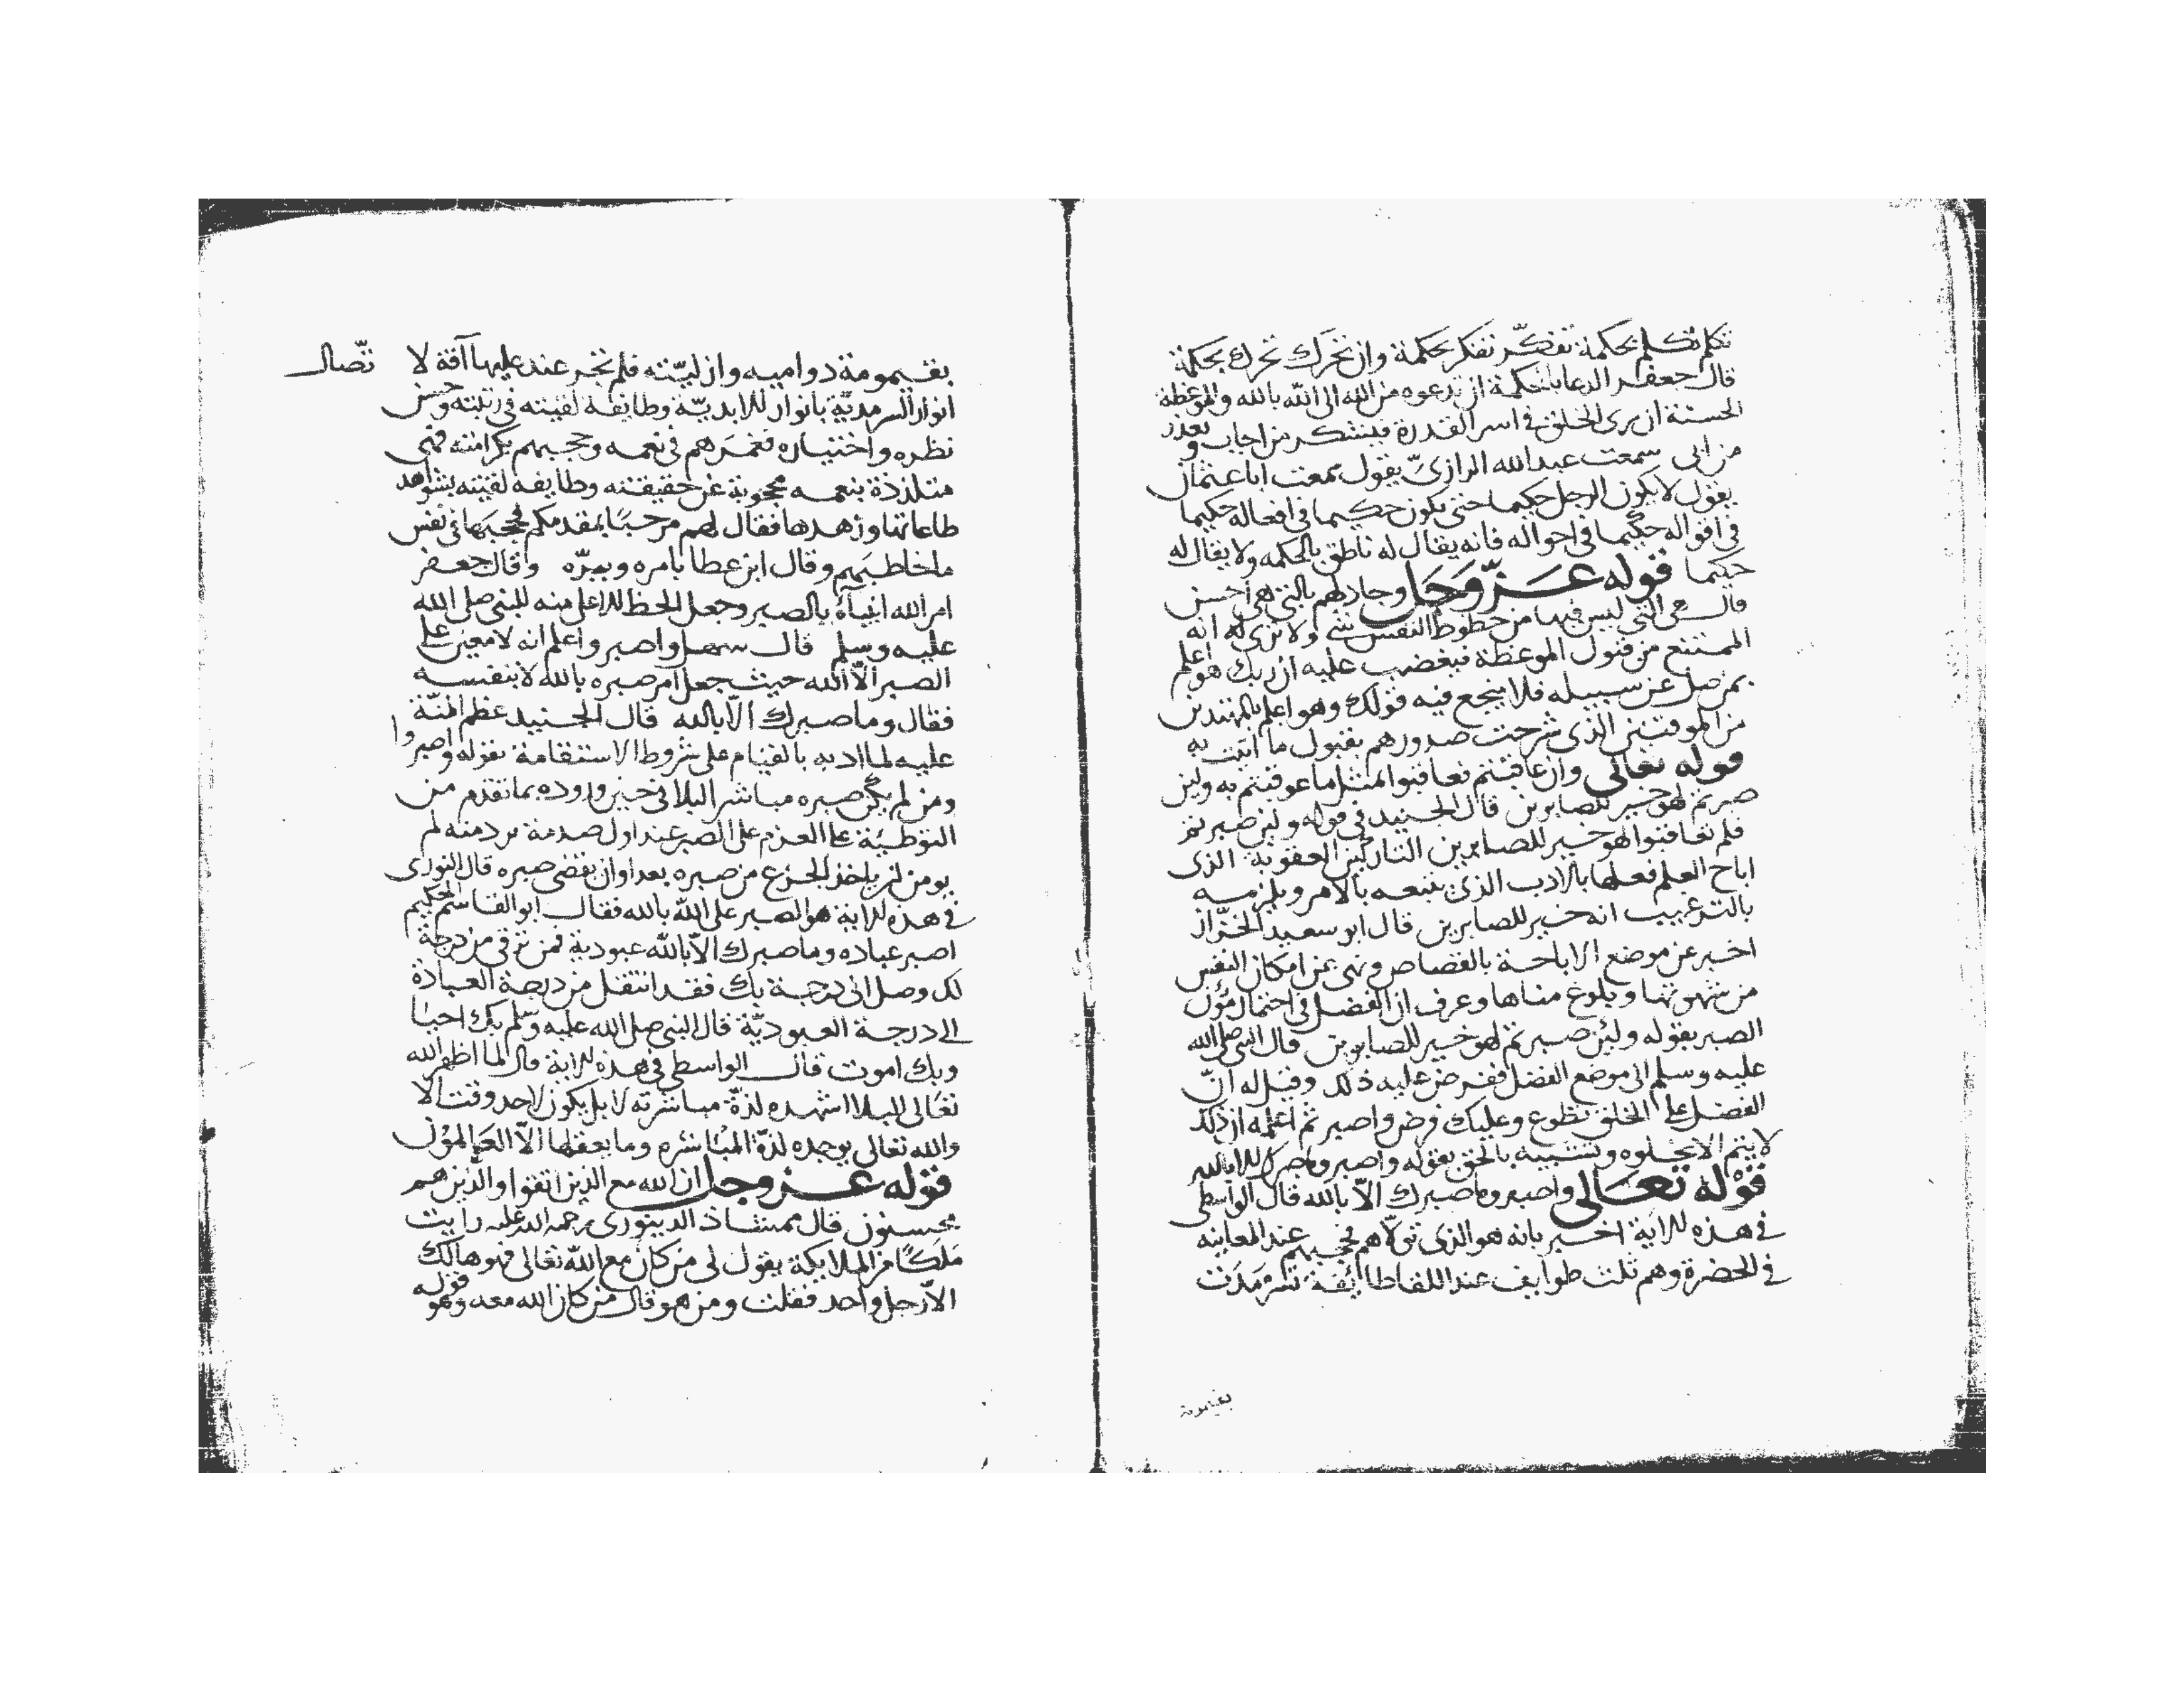 تكلم تكلم بحكمة تفكّر تفكر بحكمة وان تحرّك تحرك بحكمة
قال جعفر الدعا بالحكمة ان يدعوه من الله الى الله بالله والموعظة
الحسنة ان يرى الخلق في اسر القدرة فيشكر من اجاب ويعذر
من ابى سمعت عبد الله الرازيّ يقول سمعت ابا عثمان
يقول لا يكون الرجل حكيما حتى يكون حكيما في افعاله حكيما
في اقواله حكيما في احواله فانه يقال له ناطق بالحكمه ولا يقال له
حكيما قوله عزّ وَجَل وجادلهم بالتي هي احسن
قال هى التي ليس فيها من حظوظ النفس شي ولا ترى له انه
الممتنع من قبول الموعظة فيغضب عليه ان ربك هو اعلم
بمن ضل عن سبيله فلا ينجع فيه قولك وهو اعلم بالمهتدين
من الموقنين الذى شرحت صدورهم بقبول ما اتيت به
قوله تعالى وان عاقبتم فعاقبوا بمثل ما عوقبتم به ولين
صبرتم لهو خير للصابرين قال الجنيد في قوله ولين صبرتم
فلم تعاقبوا لهو خير للصابرين التاركين العقوبة الذى
اباح العلم فعلها بالادب الذى يتبعه بالامر ويلزمه
بالترغيب انه خير للصابرين قال ابو سعيد الخرّاز
اخبر عن موضع الاباحة بالقصاص ونهى عن امكان النفس
من شهوتها وبلوغ مناها وعرف ان الفضل في احتمال مؤن
الصبر بقوله ولئن صبرتم لهو خير للصابرين قال النبي صلى الله
عليه وسلم الى موضع الفضل ففرض عليه ذلك وقيل له انّ
الفضل على الخلق تطوع وعليك فرض واصبر ثم اعلمه ان ذلك
لا يتم الا بخلوه وتشبيه بالحق بقوله واصبر وما صبرك الا بالله
قوله تعَالى واصبر وما صبرك الّا بالله قال الواسطى
في هذه الاية اخبر بانه هو الذى تولّاهم فحجبهم عند المعاينه
في الحضرة وهم ثلث طوايف عند اللقا طائفة تسَرمَدَت
بقيمومة
بقيمومة دواميه وازليّته فلم تجر عند عليها آفة لا تصال
انوار السرمديّة بانوار الابديّة وطايفه لقيته في زينته وحسن
نظره واختياره فغمَرهم في نعمه وحجبهم بكرامته فهى
متلذذة بنعمه محجوبة عن حقيقته وطايفه لقيته بشواهد
طاعاتها وزهدها فقال لهم مرحبًا بمقدمكم فحجبها في نفس
ما خاطبَهم وقال ابن عطا بامره وببرّه وقال جعفر
امر الله انبياءَه بالصبر وجعل الحظ الاعلى منه للنبى صلى الله
عليه وسلم قال واصبر واعلم انه لا معين على
الصبر الّا الله حيث جعل امر صبره بالله لا بنفسه
فقال وما صبرك الّا بالله قال الجنيد عظم المنّة
عليه لما ادبه بالقيام على شروط الاستقامة بقوله واصبروا
ومن لم يكن صبره مباشر البلا في حين وروده بما تقدم من
التوطيّة على العزم على الصبر عند اول صدمة ترد منه لم
يومن ان ياخذ الجزع من صبره بعد اوان يقضى صبره قال النورى
في هذه الاية هو الصبر على الله بالله فقال ابو القاسم الحكيم
اصبر عباده وما صبرك الّا بالله عبودية فمن ترقى من درجة
لك وصل الى درجة بك فقد انتقل من درجة العبادة
الى درجة العبوديّة قال النبي صلى الله عليه وسلم بك احيا
وبك اموت قال الواسطى في هذه الاية قال لما اظهر الله
تعَالى للبلا اشهده لذّة مباشرته لا بل يكون لاحد وقت الّا
والله تعالى يوجده لذّة المبَاشره وما يعقلها الّا العالمون
قوله عز وجل ان الله مع الذين اتقوا والذين هم
محسنون قال ممشاذ الدينورى رحمه الله عليه رايت
مَلَكًا من الملايكة يقول لى من كان مع الله تعالى فهو هالك
الّا رجل واحد فقلت ومن هو قال من كان الله معه وهو قوله